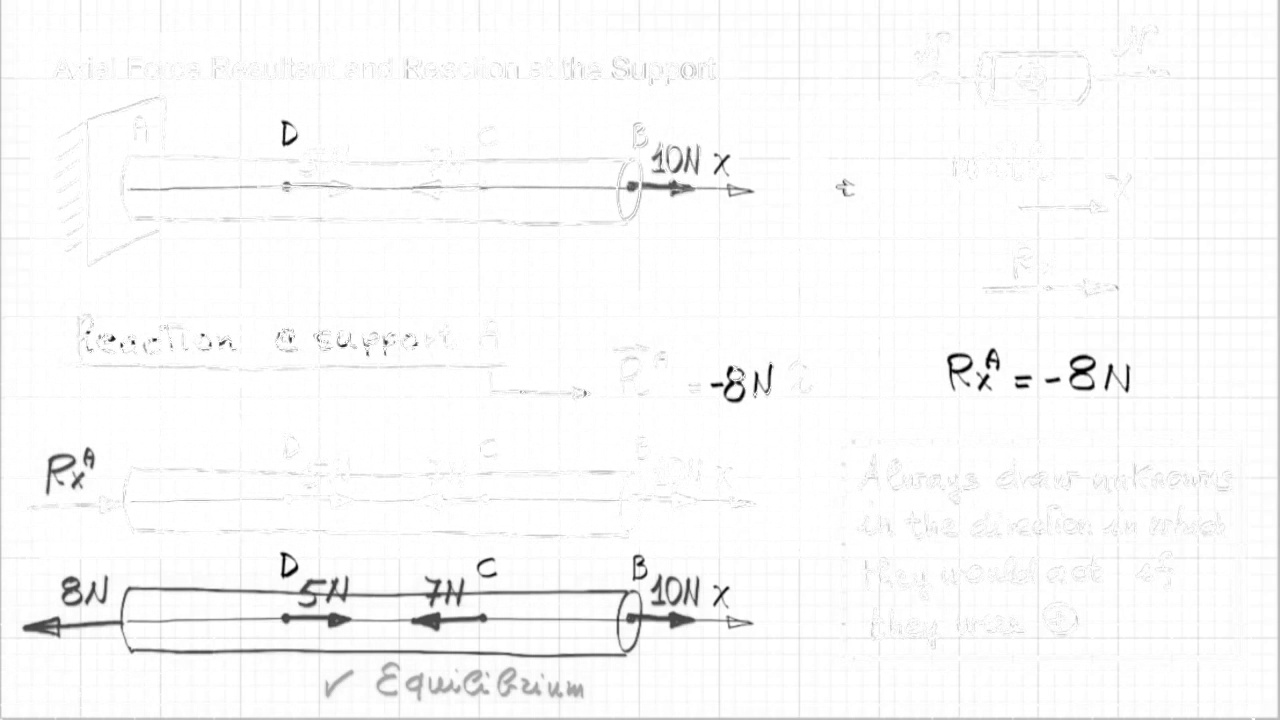 Axial Force Resultant and Reaction at the Support
A D 5N 7N C B 10N x
x
Reaction @ support A
= -8N
RxA = -8N
RxA D 5N 7N C B 10N x
Always draw unknowns
in the direction in which
they would act if
they were ⊕
8N D 5N 7N C B 10N x
✓ Equilibrium